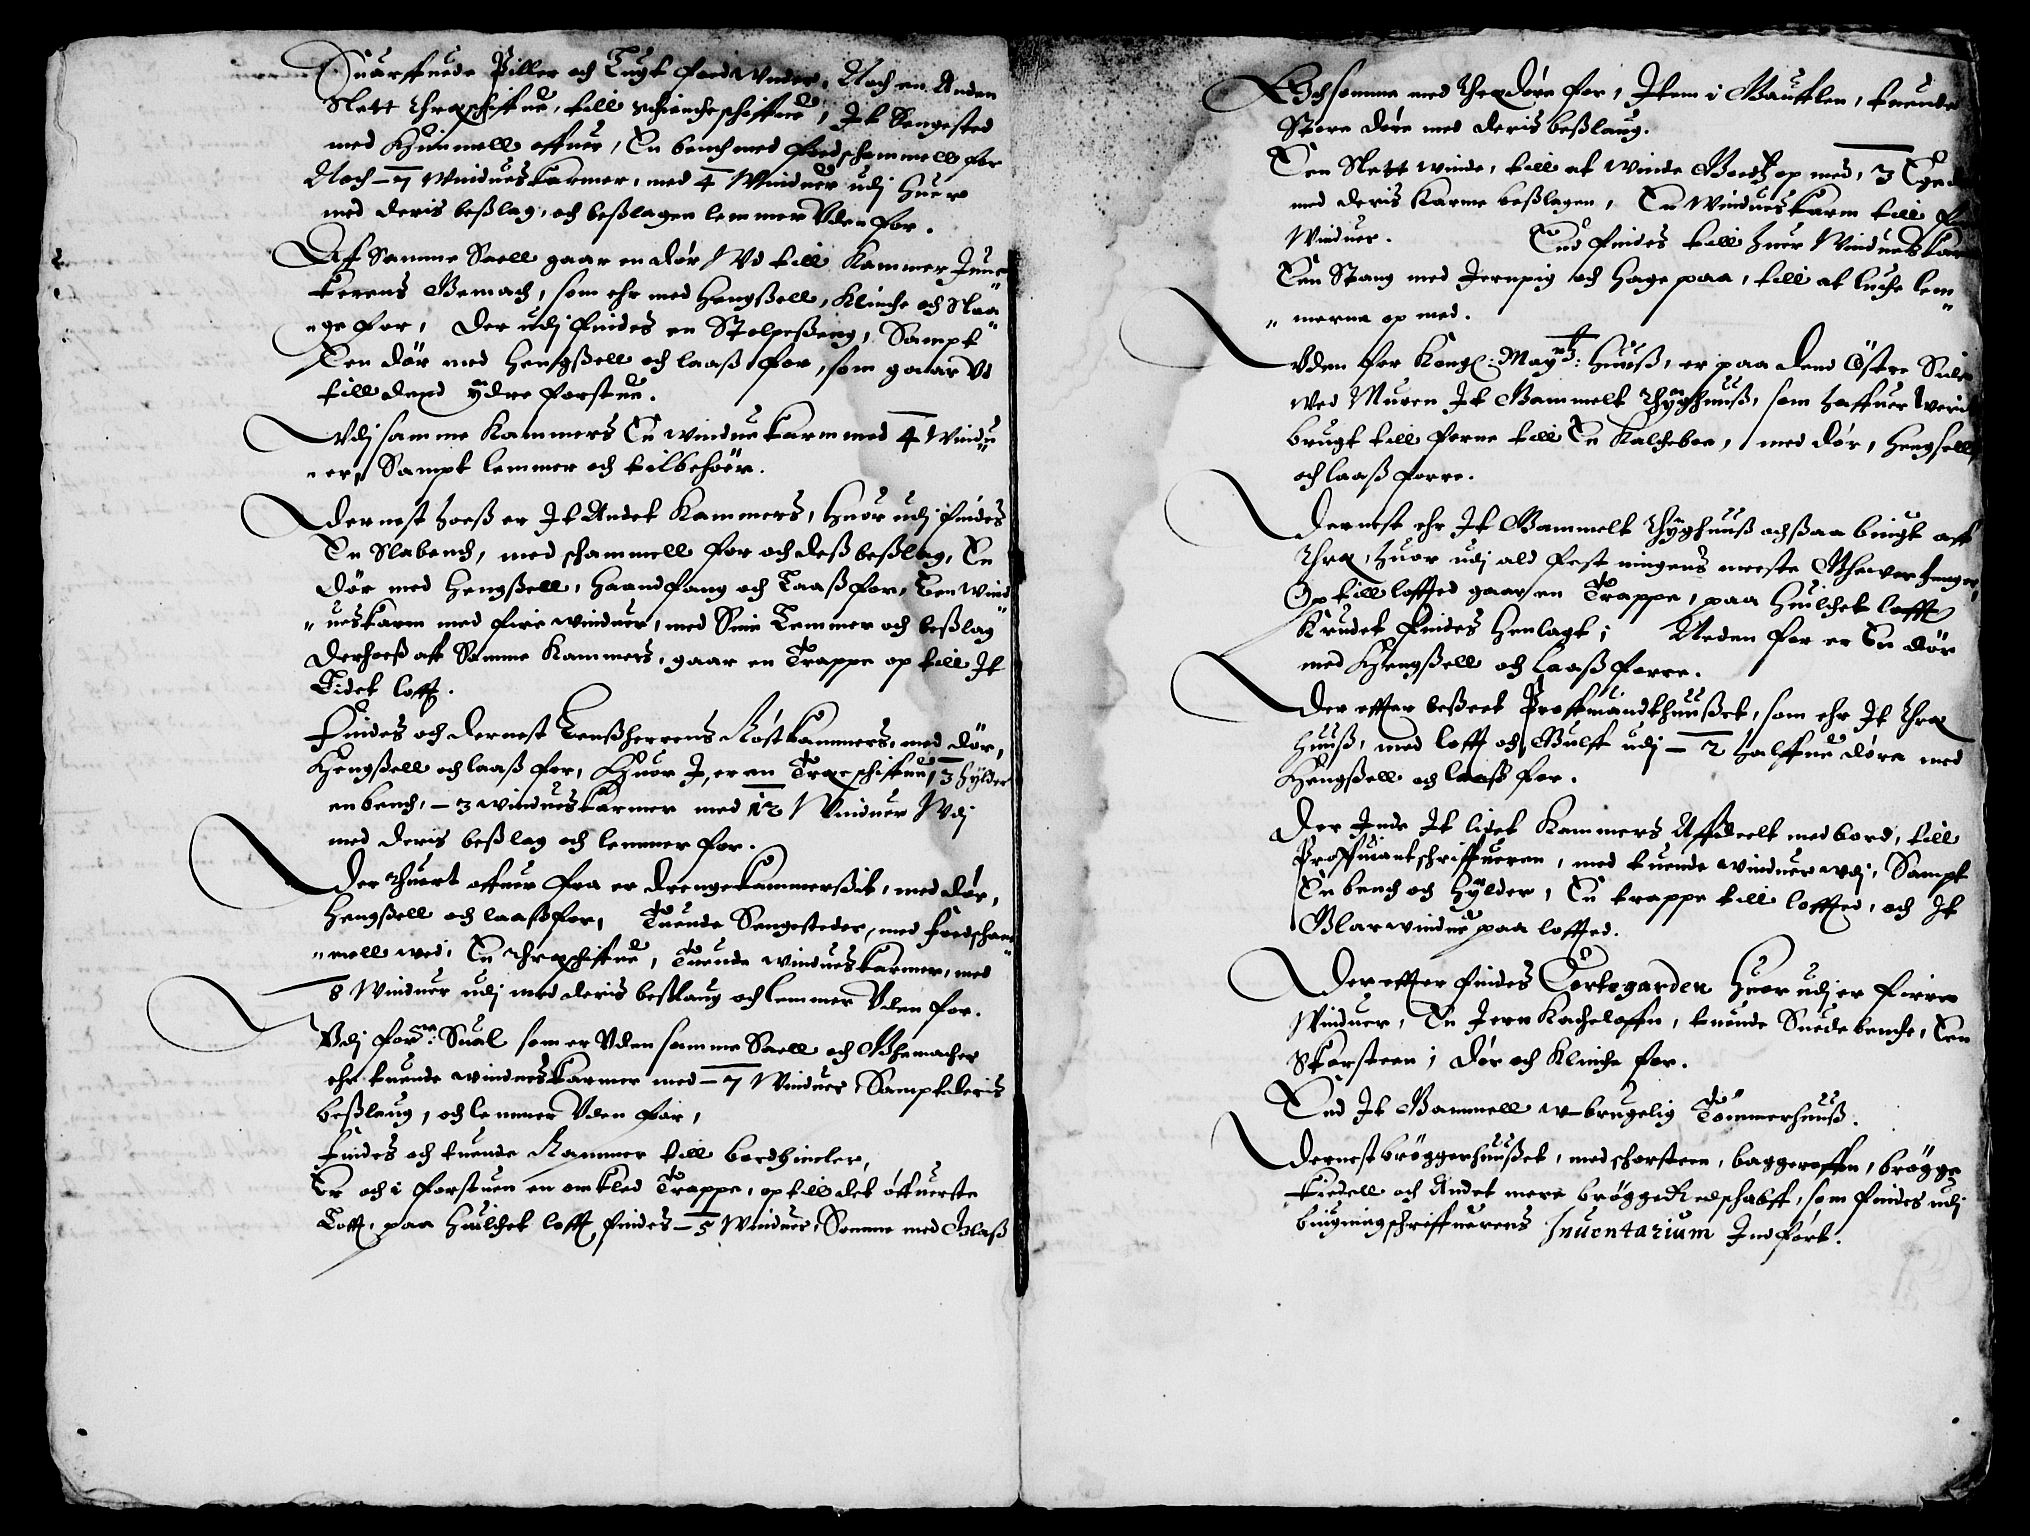 Suarffuede Piller och Tugt foed vnder, Noch en Anden
Slett Thræschiffue, till schencheschiffue, It Sengested
med Himmell offuer, En bench med foedschammell for
Noch – 7 Vinduees karmer, med 4 Vinduer udj huer
med deris beßlag, och beßlagen lemmer Vden for.
Aff Samme Saell gaar en dør Ud till Kammer Junc
kerens Gemach, som ehr med Hengßell, Klinche och Slaa
"ge for, Der udj findes en Stolpeßeng, Sampt
Een dør med Hengßell och laaß for, som gaar Vd
till dend ydre forstue.
Vdj samme Kammers En windue karm med 4 Windu
"er, Sampt lemmer och tilbehoer.
Dernest hoeß er It Andet Kammers, huor udj findes
En Slabench, med schammell for och deß beßlag, En
dør med Hengßell, Haandfang och Laaß for, Een wind
"ueskarm med fire winduer, med Sine Lemmer och beßlag
Derhoeß aff Samme Kammers, gaar en Trappe op till It
Lidet lofft.
Findes och dernest Lenßherrens Røstkammers, med dør,
Hengßell och laaß for, Huor J, er en Træschiffue, 3 Hylder
en bench, – 3 windues karmer med 12 Vinduer Vdj
med deris beßlag och lemmer for.
Der thuert offuer fra er drengekammerßit, med dør,
Hengßell och laaß for, Tuende Sengesteder, med foedscham
"mell wed, En Thræschiffue, Tuende windues karmer, med
8 Winduer udj med deris beßlaug och lemmer Vden for.
Vdj forne: Sual som er Vden samme Saell och Ghemacher
ehr tuende windues karmer med – 7 Winduer, Sampt deris
beßlaug, och lemmer Vden for,
Findes och tuende Kammer till bordhincler,
Er och i forstuen en omkled Trappe, op till det øffuerste
Lofft, paa huilchet lofft findes – 5 Winduer, Somme med Glaß
Och somme med Thredøre for, Item i Gaufflen, tuende
Store døre med deris beßlaug.
Een Slett winde, till at winde Godtz op med, 3
med deris Karme beßlagen, En Windues karm till
Winduer. End findes till huer Windues kar
Een Stang med Jernpig och hage paa, till at luche lem
"merne op med.
Vden for Kongl: Maytz: Huuß, er paa dend Østre Side
wed Muren It Gammelt Thyghuuß, som haffuer werit
brugt till ferne till En Kalcheboe, med dør, Hengsell
och laaß forre.
Dernest ehr It Gammelt Thyghuuß ochßaa biugt aff
Thræ, huor udj ald festningens meeste Gheverhenger,
Op till lofftet gaar en Trappe, paa huilchet lofft
Krudet findes Henlagt; Neden for er En dør
med Hengßell och laaß forre.
Der effter beßeet Proffuiandthuußet, som ehr It Thræ
huuß, med lofft och Gulff udj – 2 halffue døre med
Hengßell och laaß for.
Der Inde It lidet Kammers Affdeelt med bord, till
Proffuiantschriffueren, med tuende winduer wdj, Sampt
En bench och Hylder, En trappe till lofftet, och It
Glarwindue paa lofftet.
Der effter findes Cortegarden Huor udj er firre
Winduer, En Jern Kacheloffn, tuende Snede benche, Een
Skorsteen, dør och Klinche for.
End It Gammell w–brugelig Tømmerhuuß.
Dernest brøggerhuußet, med schorsteen, baggeroffn, brøgge
kiedell och Andet mere brøggeRedschabff, som findes udj
biugningschriffuerens Inuentarium Indført.